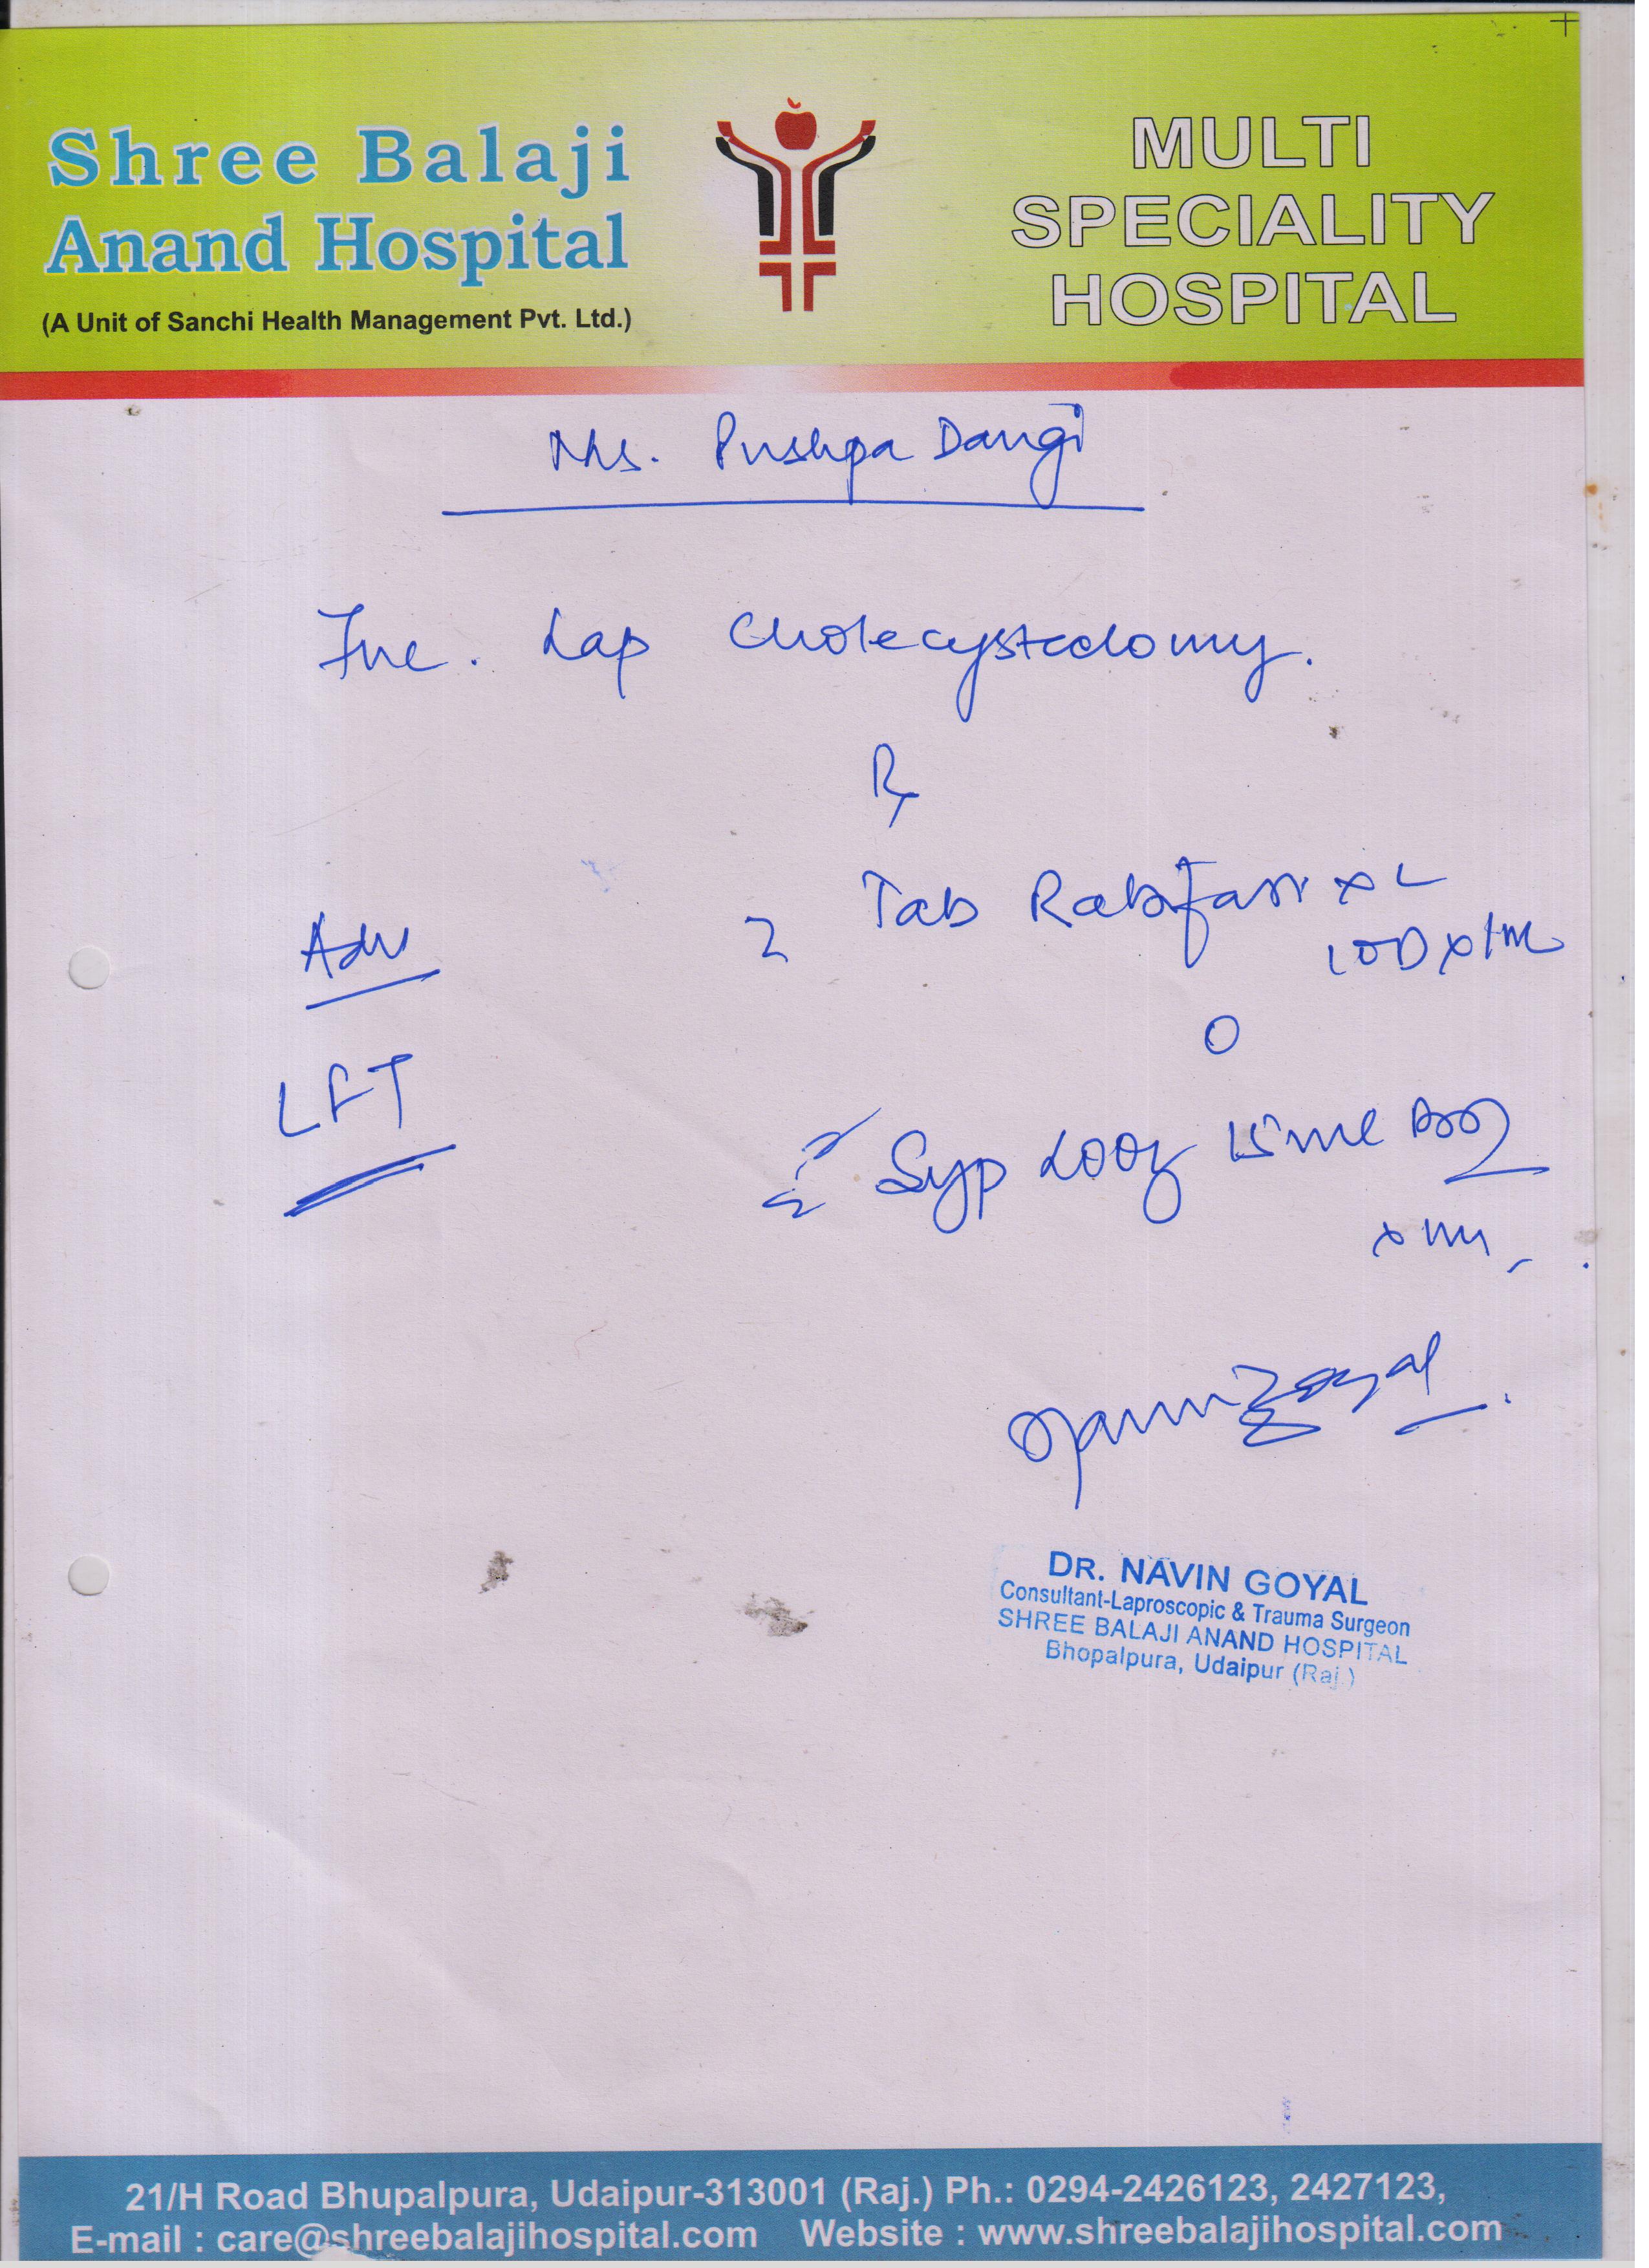 Shree Balaji
Anand Hospital
(A Unit of Sanchi Health Management Pvt. Ltd.)
MULTI
SPECIALITY
HOSPITAL
Mrs. Pushpa Dangi
Lap Cholecystectomy.
Rx
Adv
LFT
Tab
1 OD x 1m
Syp Looz 15ml
x 1m
DR. NAVIN GOYAL
Consultant-Laproscopic & Trauma Surgeon
SHREE BALAJI ANAND HOSPITAL
Bhopalpura, Udaipur (Raj.)
21/H Road Bhupalpura, Udaipur-313001 (Raj.) Ph.: 0294-2426123, 2427123,
E-mail : care@shreebalajihospital.com Website : www.shreebalajihospital.com